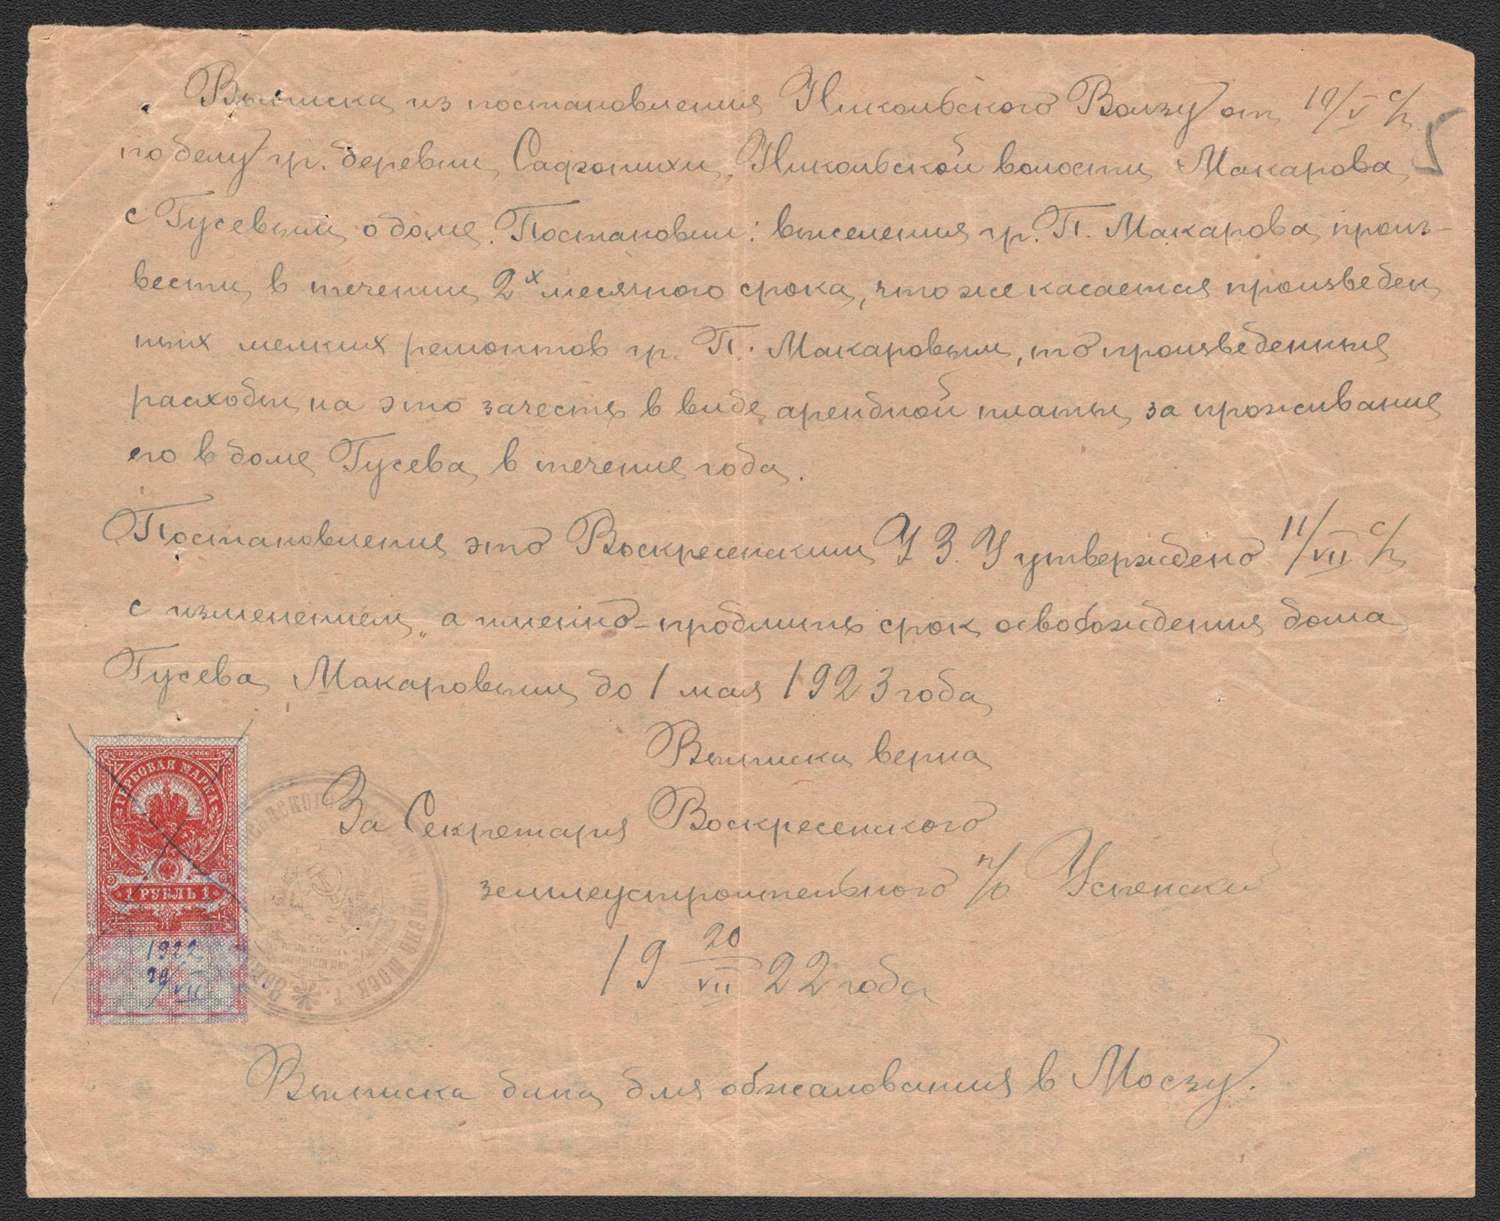 Выписка из постановления Никольского Волзу от 19/V с/г
по делу гр. деревни Сафонихи, Никольской волости Макарова
с Гусевым о доме. Постановил: выселения гр. П. Макарова произ-
вести в течении 2х месячного срока, что же касается произведен
ных мелких ремонтов гр. П. Макаровым, то произведенные
расходы на это зачесть в виде арендной платы за проживание
его в доме Гусева в течение года.
Постановления это Воскресенским УЗУ утверждено 11/VII с/г
с изменением, а именно - продлить срок освобождения дома
Гусева Макаровым до 1 мая 1923 года
Выписка верна
За Секретаря Воскресенского
землеустроительного п/о Успенский
19 20/VII 22 года
Выписка дана для обжалования в Мосзу.
ГЕРБОВАЯ МАРКА
1 РУБЛЬ 1
1922
29/VII